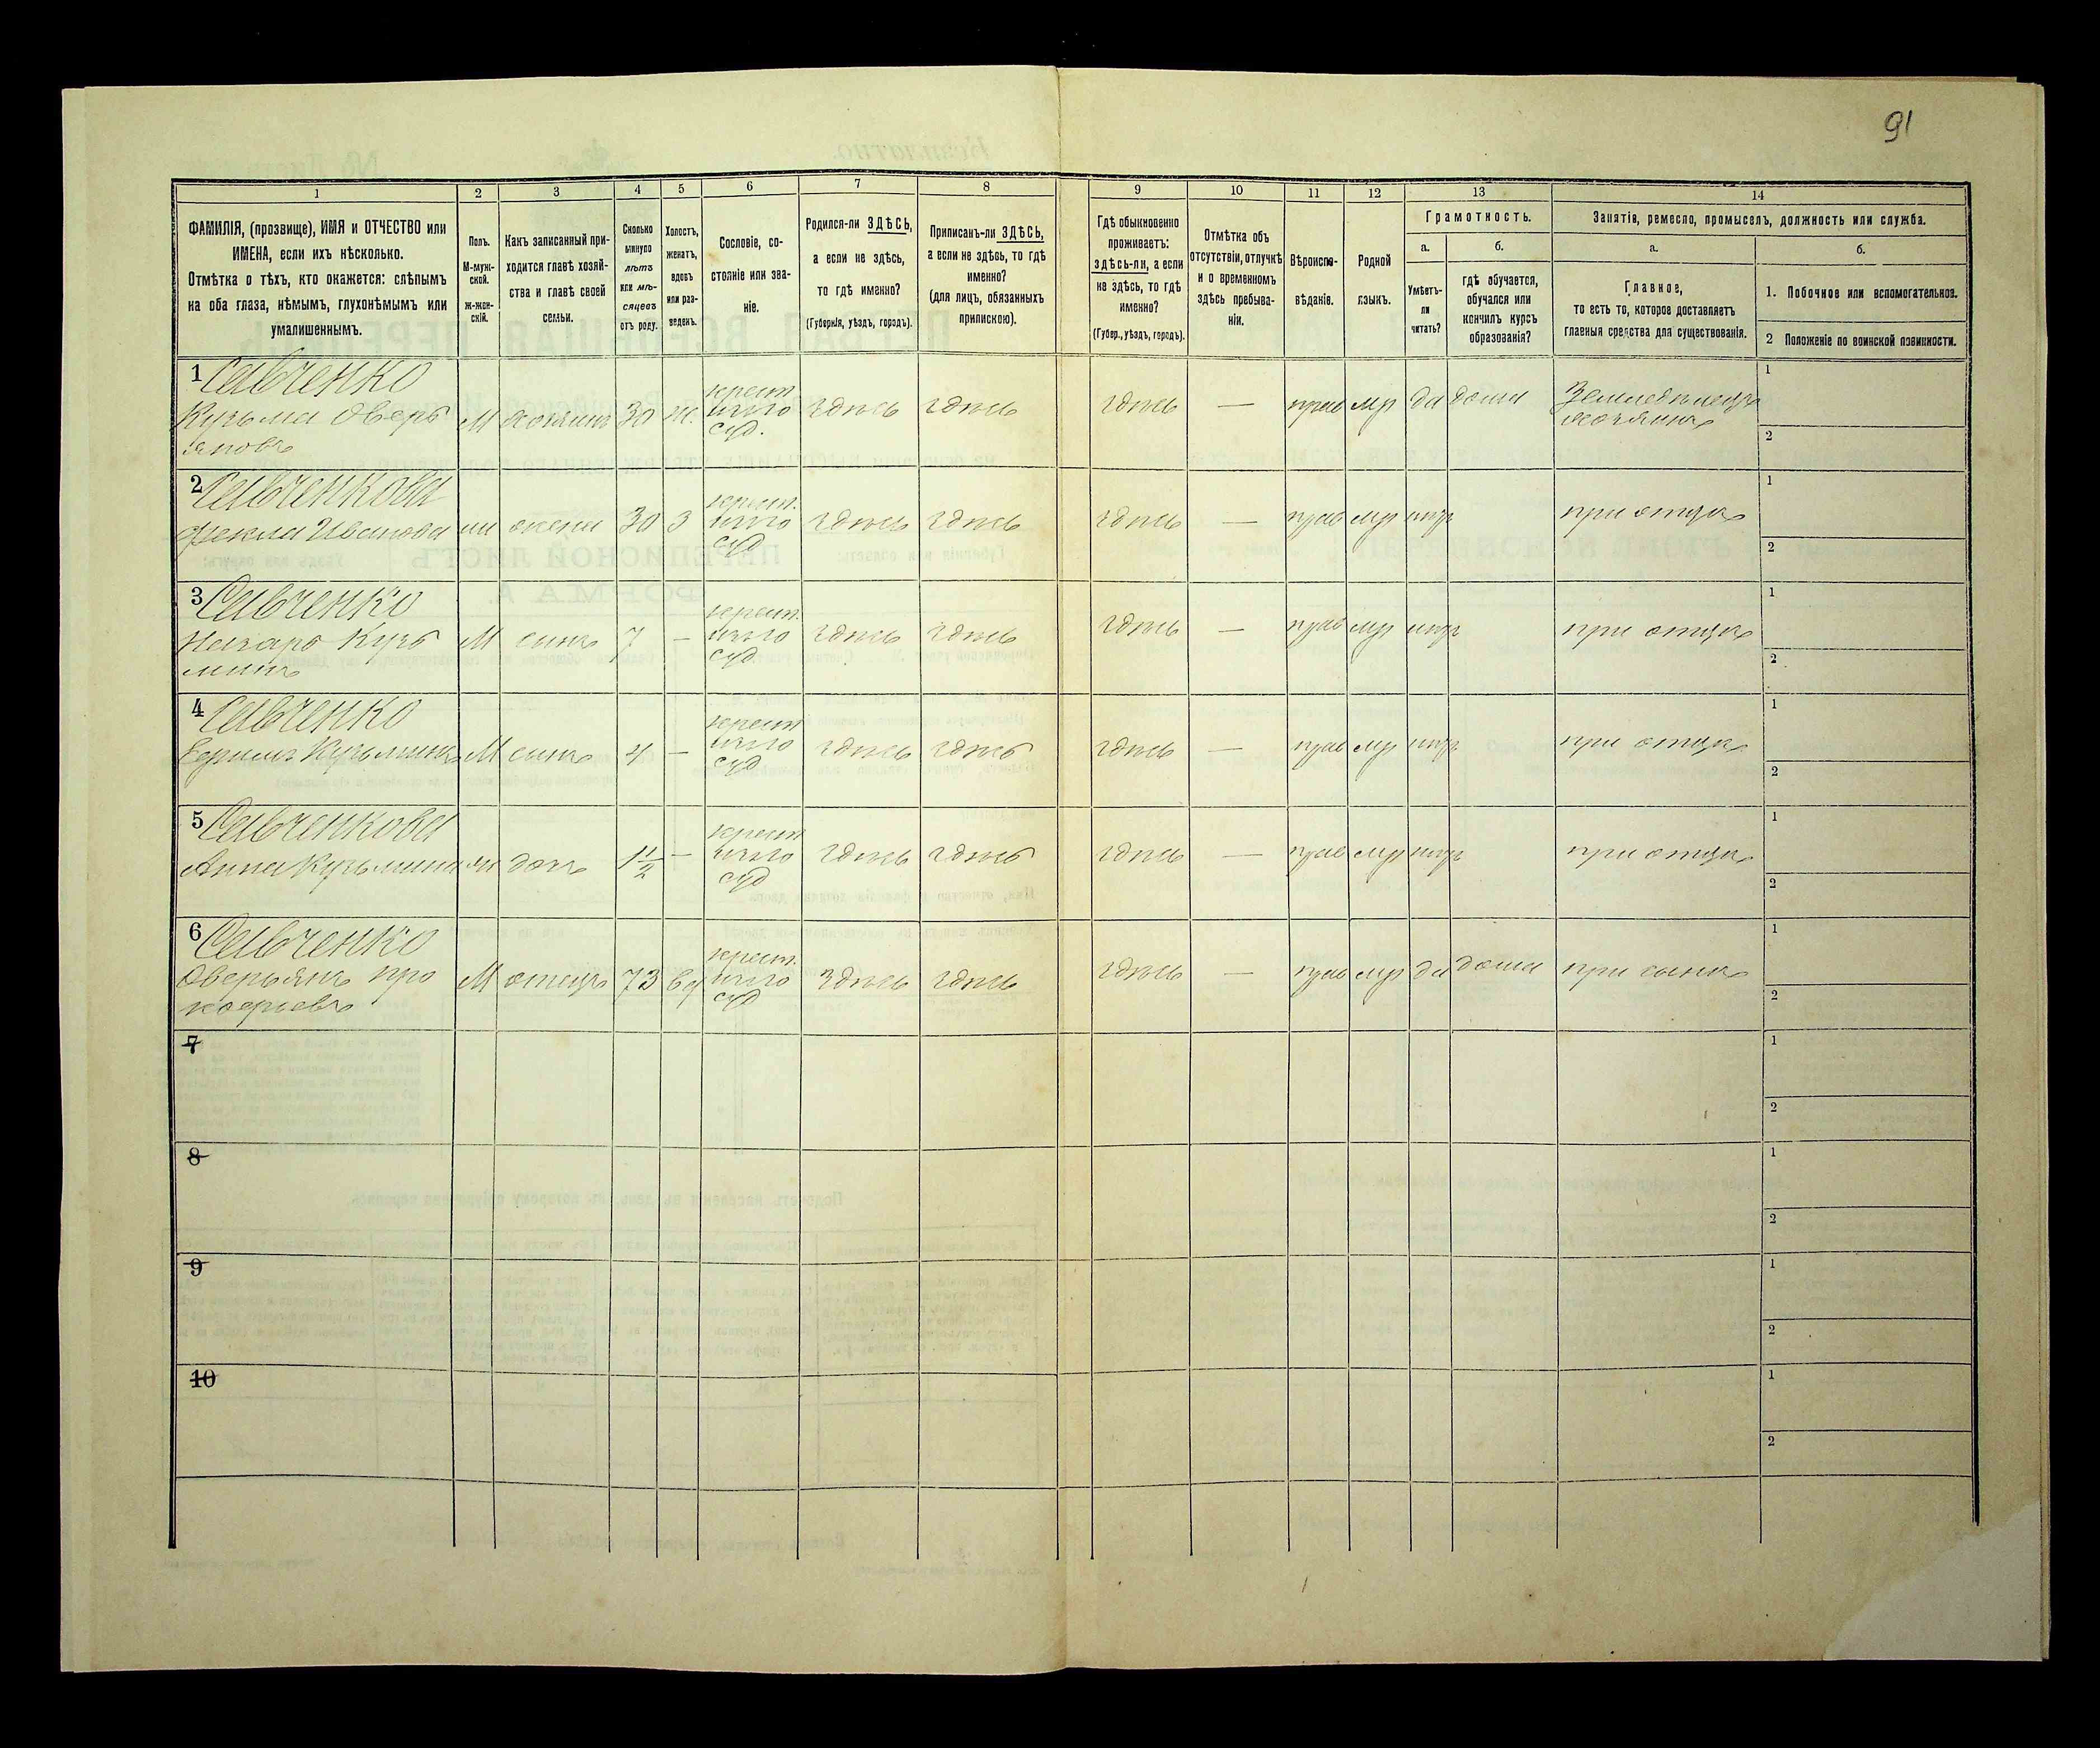 91
1 2 3 4 5 6 7 8 9 10 11 12 13 14
ФАМИЛІЯ, (прозвище), ИМЯ и ОТЧЕСТВО или
ИМЕНА, если ихъ нѣсколько.
Отмѣтка о тѣхъ, кто окажется: слѣпымъ
на оба глаза, нѣмымъ, глухонѣмымъ или
умалишеннымъ.
Полъ.
М-муж-
ской.
Ж-жен-
скій.
Какъ записанный при-
ходится главѣ хозяй-
ства и главѣ своей
семьи.
Сколько
минуло
лѣтъ
или мѣ-
сяцевъ
отъ роду.
Холостъ,
женатъ,
вдовъ
или раз-
веденъ.
Сословіе, со-
стояніе или зва-
ніе.
Родился-ли ЗДѢСЬ,
а если не здѣсь,
то гдѣ именно?
(Губернія, уѣздъ, городъ).
Приписанъ-ли ЗДѢСЬ,
а если не здѣсь, то гдѣ
именно?
(для лицъ, обязанныхъ
припискою).
Гдѣ обыкновенно
проживаетъ:
здѣсь-ли, а если
не здѣсь, то гдѣ
именно?
(Губер., уѣздъ, городъ).
Отмѣтка объ
отсутствіи, отлучкѣ
и о временномъ
здѣсь пребыва-
ніи.
Вѣроиспо-
вѣданіе.
Родной
языкъ.
Грамотность.
а.
Умѣетъ-
ли
читать?
б.
гдѣ обучается,
обучался или
кончилъ курсъ
образованія?
Занятіе, ремесло, промыселъ, должность или служба.
а.
Главное,
то есть то, которое доставляетъ
главныя средства для существованія.
б.
1. Побочное или вспомогательное.
2 Положеніе по воинской повинности.
1 Савченко
Кузьма Оверь
яновъ
М хозяинъ 30 ж. крест здѣсь здѣсь здѣсь — прав мр да дома Земледѣлецъ
хозяинъ
1
2
2 Савченкова
Фекла Иванова жи жена 30 З крест. здѣсь здѣсь здѣсь — прав мр нтъ при отцѣ
1
2
3 Савченко
Назаръ Кузь
минъ
М сынъ 7 — крест. здѣсь здѣсь здѣсь — прав мр нтъ при отцѣ
1
2
4 Савченко
Кузьминъ М сынъ 4 — крест здѣсь здѣсь здѣсь — прав мр нтъ при отцѣ
1
2
5 Савченкова
Анна Кузьмина жи дочь 1 1/2 — крест здѣсь здѣсь здѣсь — прав мр нтъ при отцѣ
1
2
6 Савченко
Оверьянъ Про
кофьевъ
М отецъ 73 вд крест. здѣсь здѣсь здѣсь — прав мр да дома при сынѣ
1
2
7
1
2
8
1
2
9
1
2
10
1
2